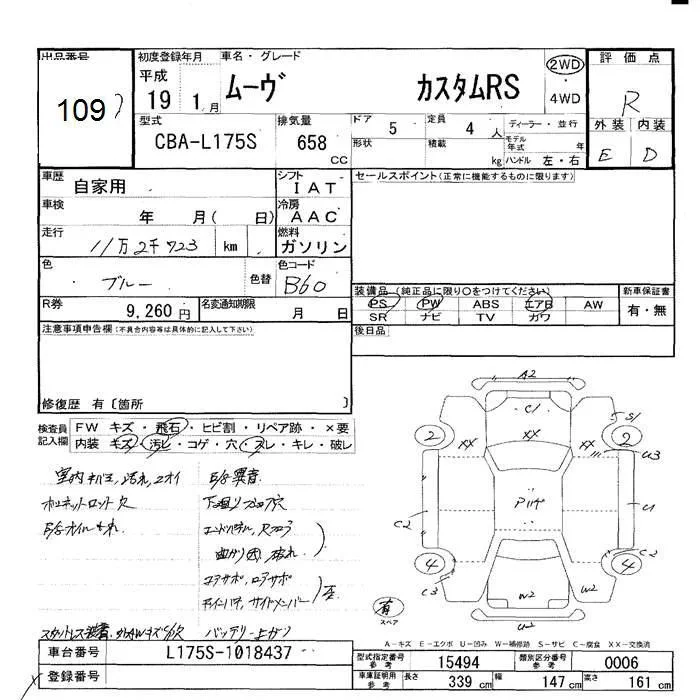 出品番号
109
初度登録年月
平成
19 1月
車名・グレード
ムーヴ カスタムRS
2WD
4WD
評価点
R
外装 内装
E D
型式
CBA-L175S
排気量
658 CC
ドア 5
定員 4 人
ディーラー・並行
形状
積載 kg
モデル年式 年
ハンドル 左・右
車歴 自家用
シフト IAT
セールスポイント(正常に機能するものに限ります)
車検 年 月( 日)
冷房 AAC
走行 11万2千723 km
燃料 ガソリン
色 ブルー
色替
色コード B60
装備品 (純正品に限り○をつけてください)
新車保証書
PS PW ABS エアB AW
有・無
SR ナビ TV カワ
R券 9,260円
名変通知期限 月 日
後日品
注意事項申告欄(不具合内容等は具体的に記入して下さい)
修復歴 有〔箇所 〕
検査員記入欄
FW キズ・飛石・ヒビ割・リペア跡・×要
内装 キズ・汚レ・コゲ・穴・スレ・キレ・破レ
室内キバミ,汚れ,ニオイ
E/g異音
下廻り
曲がり
コアサポ,ロアサポ
サイドメンバー
バッテリー上がり
A2
C1
S1
2
XX
XX
XX
2
U3
C2
U1
4
C3
C2
4
W2
W2
U2
有
スペア
A-キズ E-エクボ U-凹み W-補修跡 S-サビ C-腐食 XX-交換済
車台番号 L175S-1018437
登録番号
型式指定番号 参考 15494
類別区分番号 参考 0006
車庫証明用 参考 長さ 339 cm 幅 147 cm 高さ 161 cm